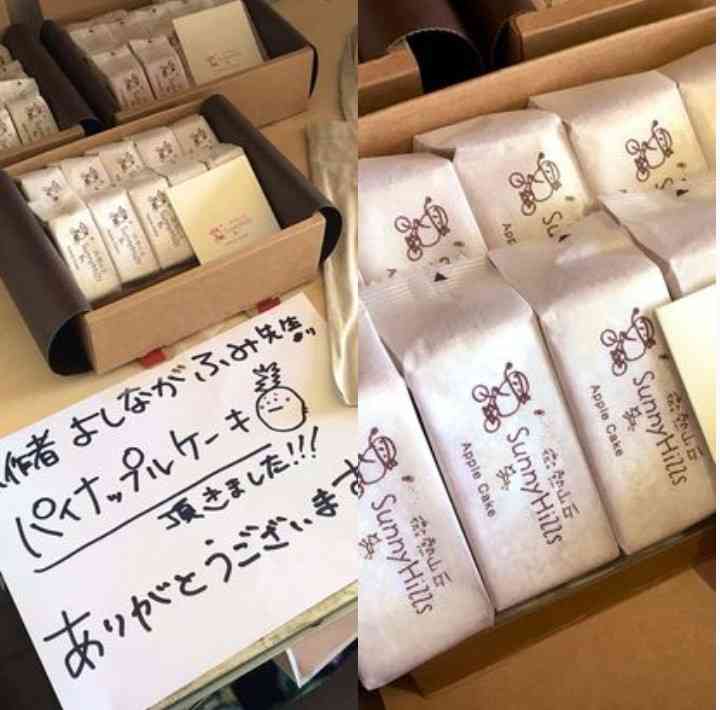 作者 よしながふみ先生より
パイナップルケーキ
頂きました!!!
ありがとうございます
SunnyHills
Apple Cake
SunnyHills
Apple Cake
SunnyHills